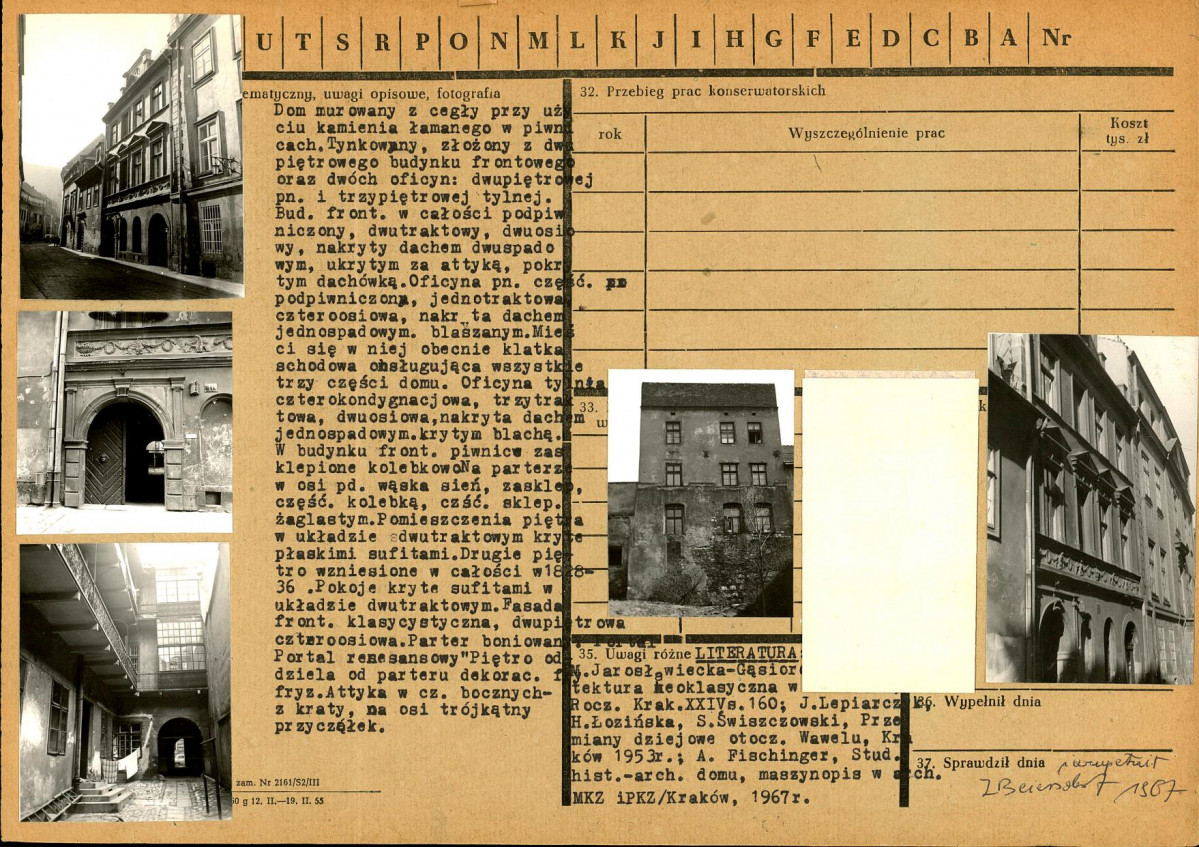 U T S R P O N M L K J I H G F E D C B A Nr
ematyczny, uwagi opisowe, fotografia
Dom murowany z cegły przy uży
ciu kamienia łamanego w piwni
cach.Tynkowany, złożony z dwu
piętrowego budynku frontowego
oraz dwóch oficyn: dwupiętrowej
pn. i trzypiętrowej tylnej.
Bud. front. w całości podpiw
niczony, dwutraktowy, dwuosio
wy, nakryty dachem dwuspado
wym, ukrytym za attyką, pokr
tym dachówką.Oficyna pn. część.
podpiwniczona, jednotraktowa
czteroosiowa, nakr ta dachem
jednospadowym. blaszanym.Mieś
ci się w niej obecnie klatka
schodowa obsługująca wszystkie
trzy części domu. Oficyna tylna
czterokondygnacjowa, trzytrak
towa, dwuosiowa,nakryta dachem
jednospadowym.krytym blachą.
W budynku front. piwnice zas
klepione kolebkowoNa parterze
w osi pd. wąska sień, zasklep,
część. kolebką, czść. sklep.
żaglastym.Pomieszczenia piętra
w układzie dwutraktowym kryte
płaskimi sufitami.Drugie pię-
tro wzniesione w całości w1828-
36 .Pokoje kryte sufitami w
układzie dwutraktowym.Fasada
front. klasycystyczna, dwupiętrowa
czteroosiowa.Parter boniowany Portal
Portal renesansowy"Piętro od
dziela od parteru dekorac.
fryz.Attyka w cz. bocznych-
z kraty, na osi trójkątny
przyczółek.
zam. Nr 2161/S2/III
60 g 12. II.—19. II. 55
32. Przebieg prac konserwatorskich
rok
Wyszczególnienie prac
Koszt
tys. zł
33.
w
k
35. Uwagi różne LITERATURA:
M.Jarosławiecka-Gąsior
tektura neoklasyczna w
Rocz. Krak.XXIVs.160; J.Lepiarczyk,
H.Łozińska, S.Świszczowski, Prze
miany dziejowe otocz. Wawelu, Kra
ków 1953r.; A. Fischinger, Stud.
hist.-arch. domu, maszynopis w arch.
MKZ iPKZ/Kraków, 1967r.
36. Wypełnił dnia
37. Sprawdził dnia
1967